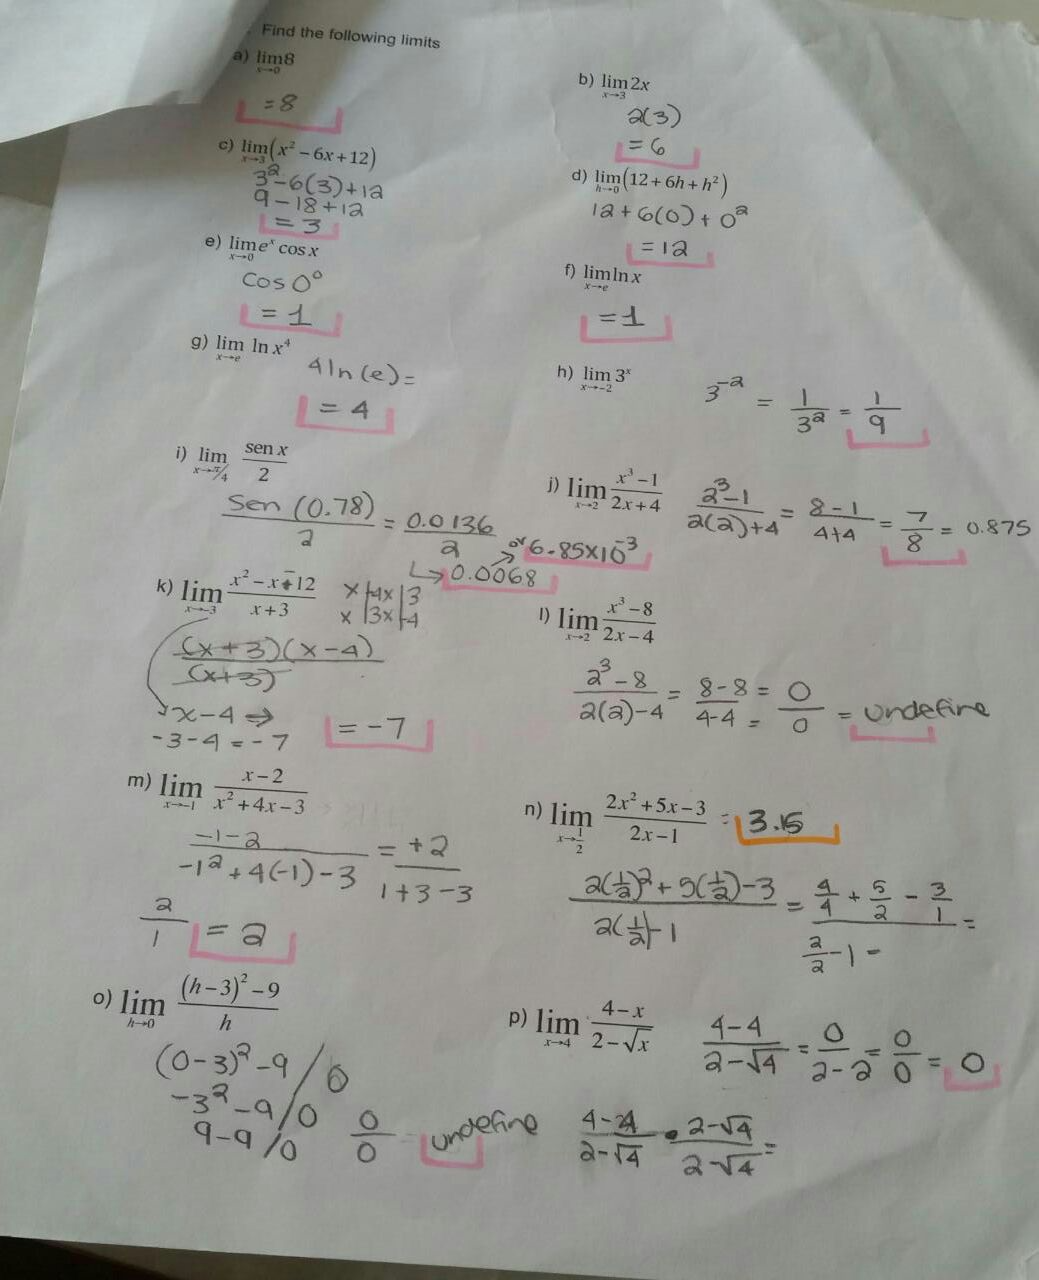 Find the following limits
a) lim8
x→0
= 8
b) lim2x
x→3
2(3)
= 6
c) lim(x² − 6x + 12)
x→3
3² - 6(3) + 12
9 - 18 + 12
= 3
d) lim(12 + 6h + h²)
h→0
12 + 6(0) + 0²
= 12
e) lime^x cos x
x→0
Cos 0°
= 1
f) limln x
x→e
= 1
g) lim ln x⁴
x→e
4ln(e) =
= 4
h) lim 3^x
x→−2
3^-2 = 1/3² = 1/9
i) lim sen x / 2
x→π/4
Sen (0.78) / 2 = 0.0136 / 2
or 6.85x10^-3
0.0068
j) lim x³ − 1 / 2x + 4
x→2
2³-1 / 2(2)+4 = 8-1 / 4+4 = 7/8 = 0.875
k) lim x² − x − 12 / x + 3
x→−3
x | 4x | 3
x | 3x | -4
(x+3)(x-4) / (x+3)
x-4 ⇒
-3-4 = -7
= -7
l) lim x³ − 8 / 2x − 4
x→2
2³-8 / 2(2)-4 = 8-8 / 4-4 = 0/0 = undefine
m) lim x − 2 / x² + 4x − 3
x→−1
-1-2 / -1²+4(-1)-3 = +2 / 1+3-3
2/1 = 2
n) lim 2x² + 5x − 3 / 2x − 1 = 3.15
x→1/2
2(1/2)² + 5(1/2) - 3 / 2(1/2) - 1 = 4/4 + 5/2 - 3/1 / 2/2 - 1 =
o) lim (h − 3)² − 9 / h
h→0
(0-3)² -9 / 0
-3² -9 / 0
9-9 / 0
0/0 undefine
p) lim 4 − x / 2 − √x
x→4
4-4 / 2-√4 = 0 / 2-2 = 0/0 = 0
4-4 / 2-√4 • 2-√4 / 2-√4 =